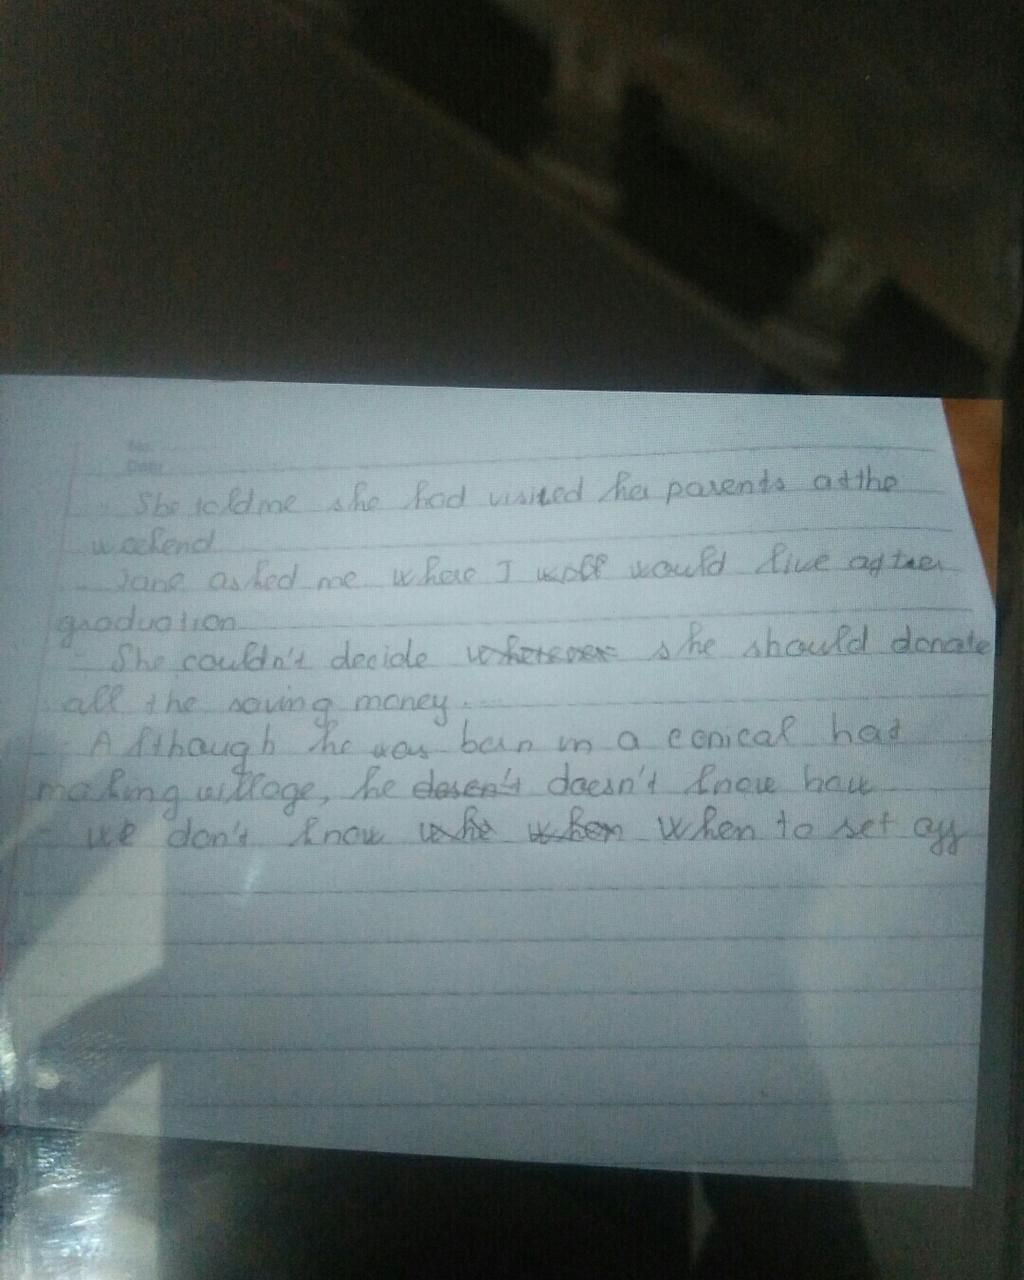 No.
Date
- She told me she had visited her parents at the
weekend
- Jane asked me where I woll would live agter
graduation
- She couldn't decide wherever she should donate
all the saving money.
- Although he was born in a conical hat
making village, he doesn't doesn't know how
- We don't know whe when when to set off